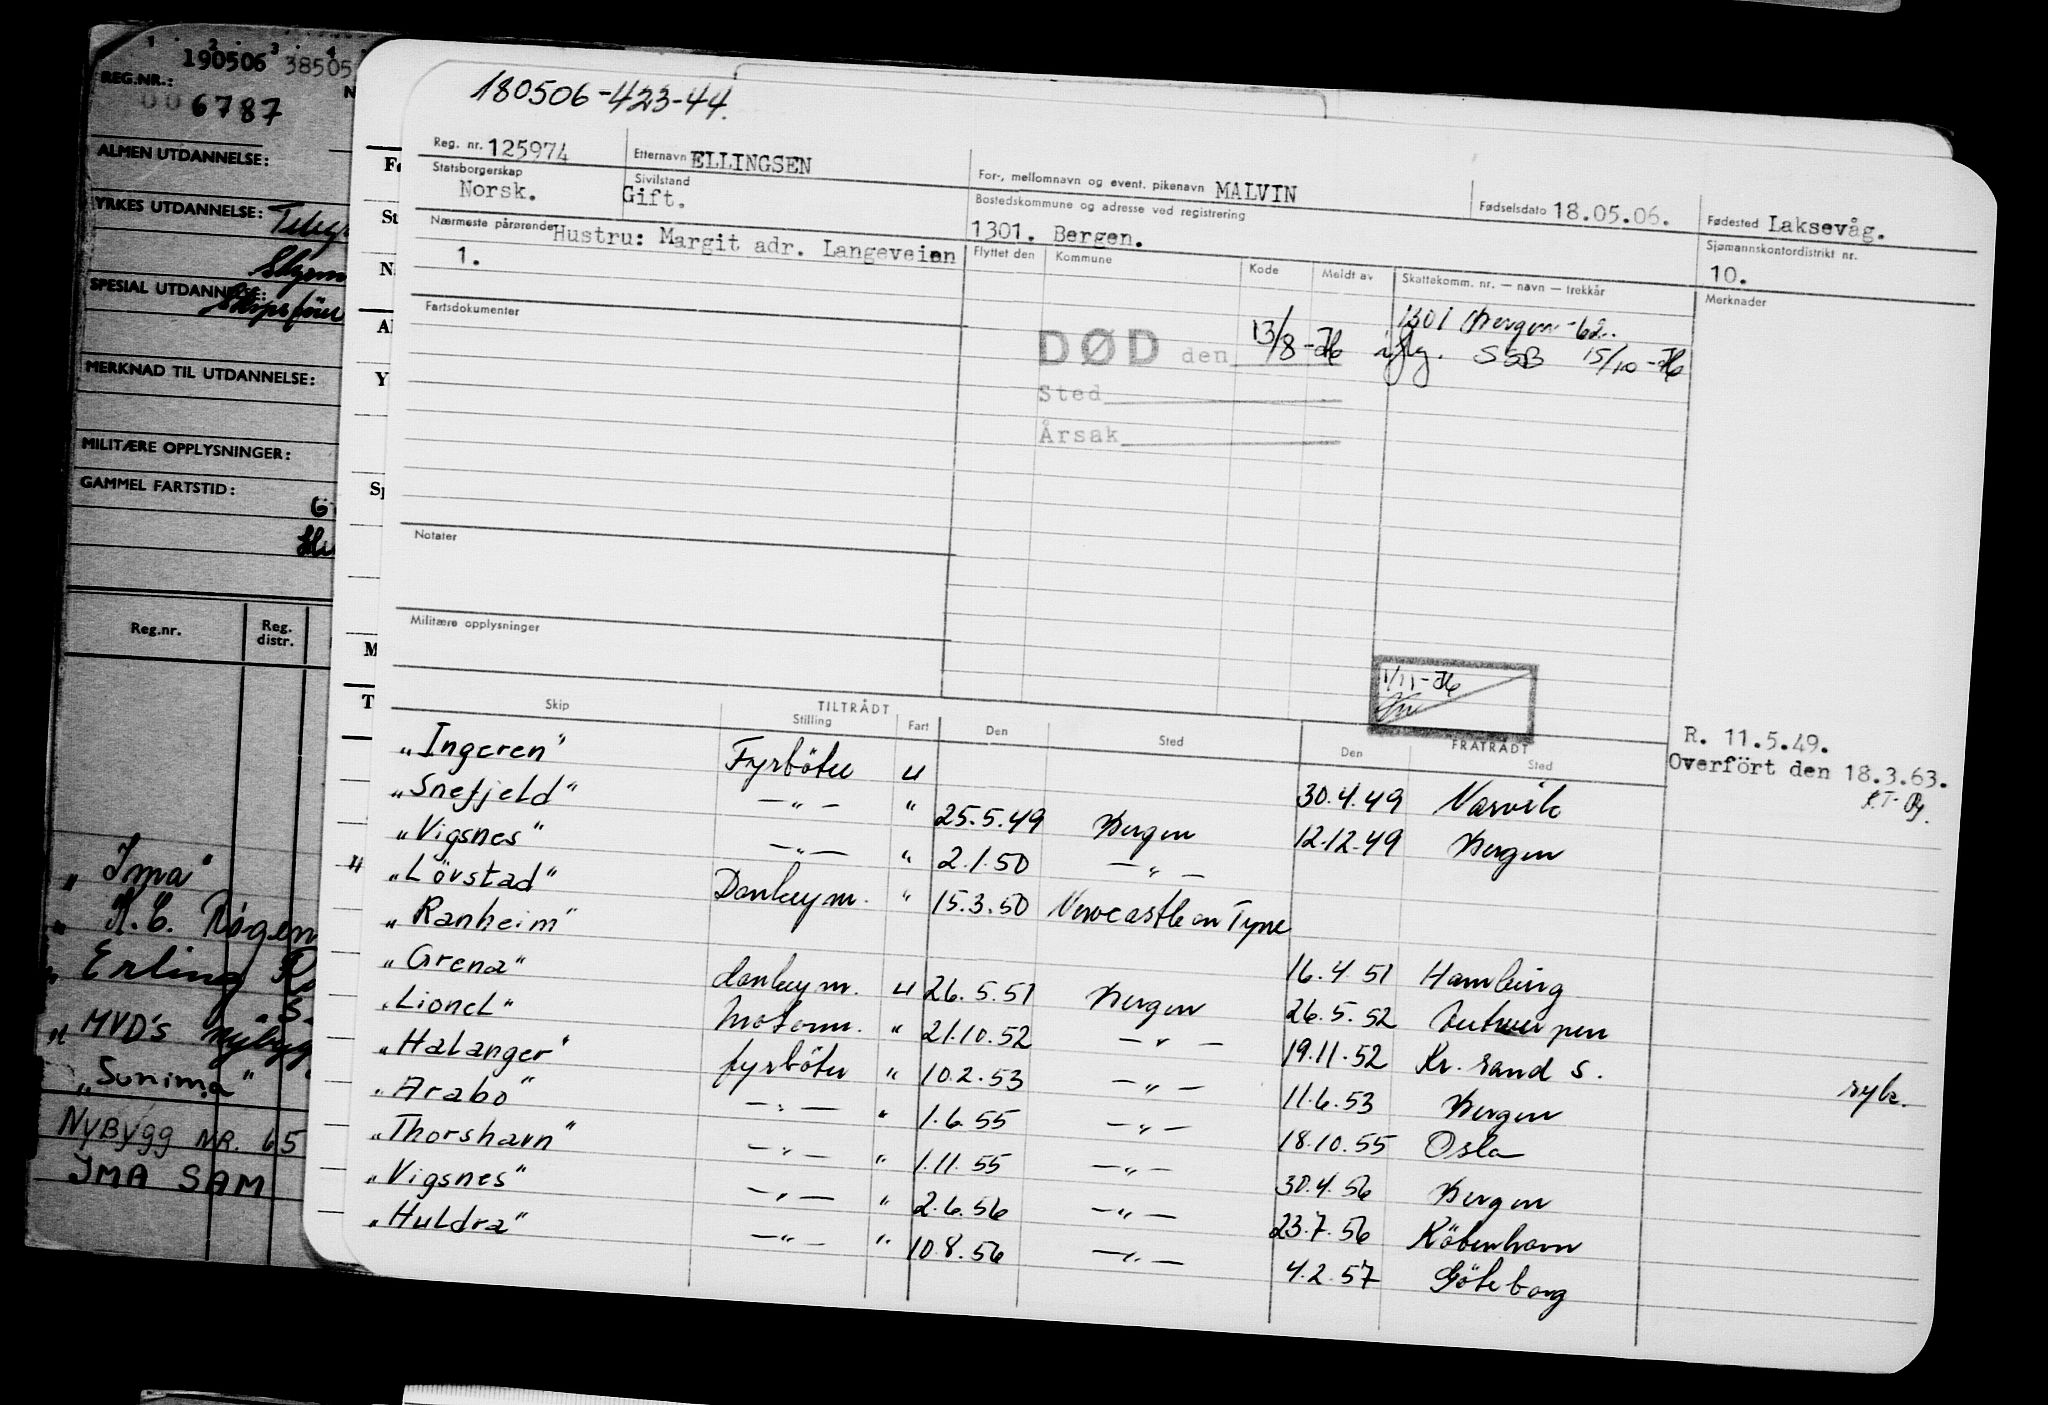 190506 38505
REG.NR.:
006787
ALMEN UTDANNELSE:
YRKES UTDANNELSE:
SPESIAL UTDANNELSE:
MERKNAD TIL UTDANNELSE:
MILITÆRE OPPLYSNINGER:
GAMMEL FARTSTID:
Reg.nr. Reg. distr.
"Ima"
"Erling
"MVD's Nybygg
"Sunima"
NYBYGG NR. 65
IMA SAM
180506-423-44.
Reg. nr. 125974 Etternavn ELLINGSEN For-, mellomnavn og event. pikenavn MALVIN Fødselsdato 18.05.06. Fødested Laksevåg.
Statsborgerskap Norsk. Sivilstand Gift. Bostedskommune og adresse ved registrering 1301. Bergen. Sjømannskontordistrikt nr. 10.
Nærmeste pårørende Hustru: Margit adr. Langeveien 1.
Flyttet den Kommune Kode Meldt av Skattekomm. nr. — navn — trekkår Merknader
1301 Bergen -62.
Fartsdokumenter
DØD den 13/8-76 iflg. SSB 15/10-76
Sted
Årsak
Notater
Militære opplysninger
1/11-76
R. 11.5.49.
Overført den 18.3.63.
Skip TILTRÅDT Stilling Fart Den Sted FRATRÅDT Den Sted
"Ingeren" Fyrböter u 30.4.49 Narvik
"Snefjeld" —"— " 25.5.49 Bergen 12.12.49 Bergen
"Vigsnes" —"— " 2.1.50 —"—
"Lövstad" Donkeym. " 15.3.50 Newcastle on Tyne
"Ranheim" 16.4.51 Hamburg
"Grena" donkeym. u 26.5.51 Bergen 26.5.52 Antwerpen
"Lionel" Motorm. " 21.10.52 —"— 19.11.52 Kr. sand S.
"Halanger" fyrböter " 10.2.53 —"— 11.6.53 Bergen syk.
"Arabo" —"— " 1.6.55 —"— 18.10.55 Oslo
"Thorshavn" —"— " 1.11.55 —"— 30.4.56 Bergen
"Vigsnes" —"— " 2.6.56 —"— 23.7.56 Köbenhavn
"Huldra" —"— " 10.8.56 —"— 4.2.57 Göteborg